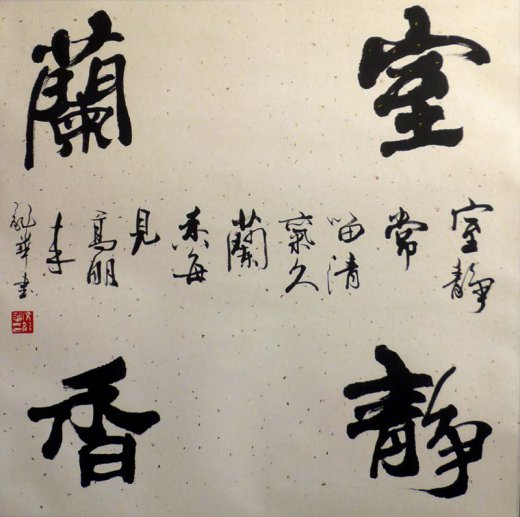 室靜
蘭香
室靜
常
留清
氣久
蘭
香每
見
高朋
来
華書